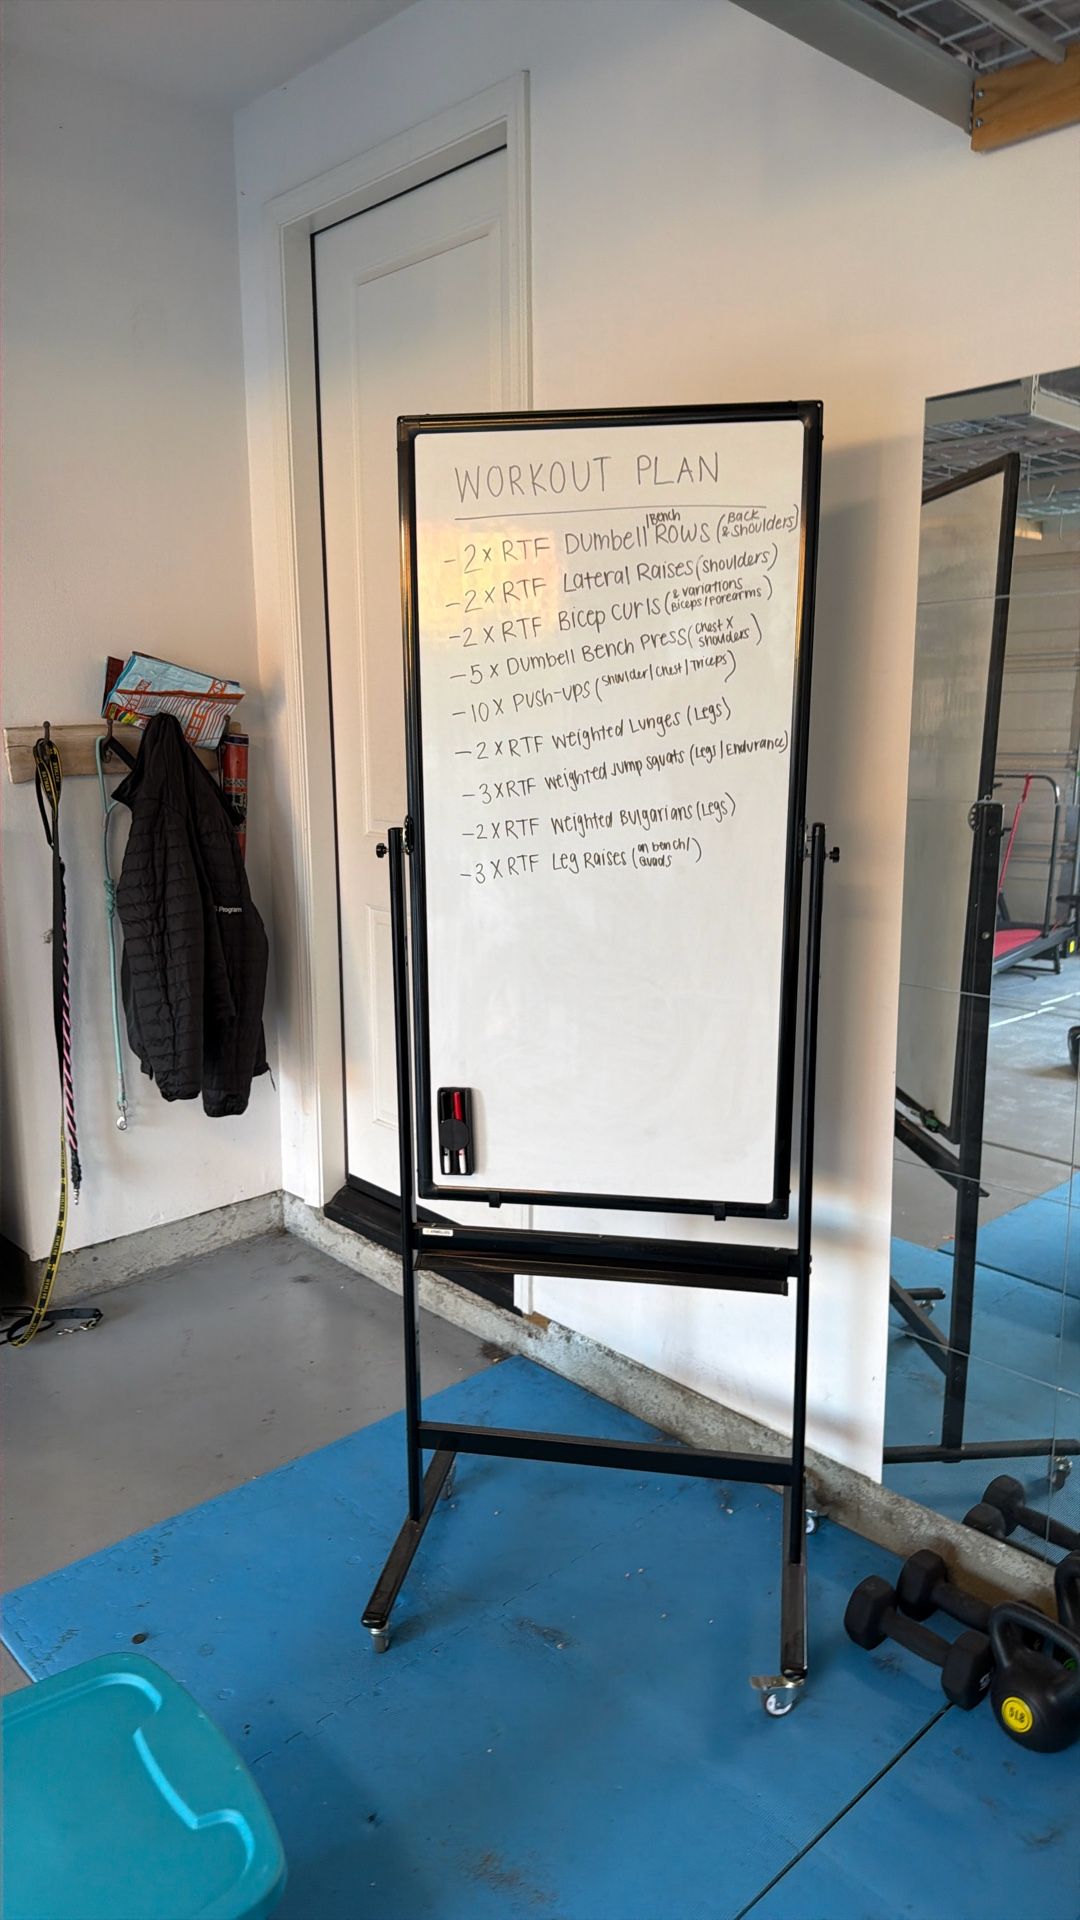 WORKOUT PLAN
- 2 x RTF Dumbell /Bench Rows (Back & Shoulders)
- 2 x RTF Lateral Raises (shoulders)
- 2 x RTF Bicep Curls (& variations Biceps/Forearms)
- 5 x Dumbell Bench Press (Chest x shoulders)
- 10 x Push-ups (Shoulder/Chest/Triceps)
- 2 x RTF Weighted Lunges (Legs)
- 3 x RTF Weighted Jump squats (Legs/Endurance)
- 2 x RTF Weighted Bulgarians (Legs)
- 3 x RTF Leg Raises (on bench/ Quads)
Program